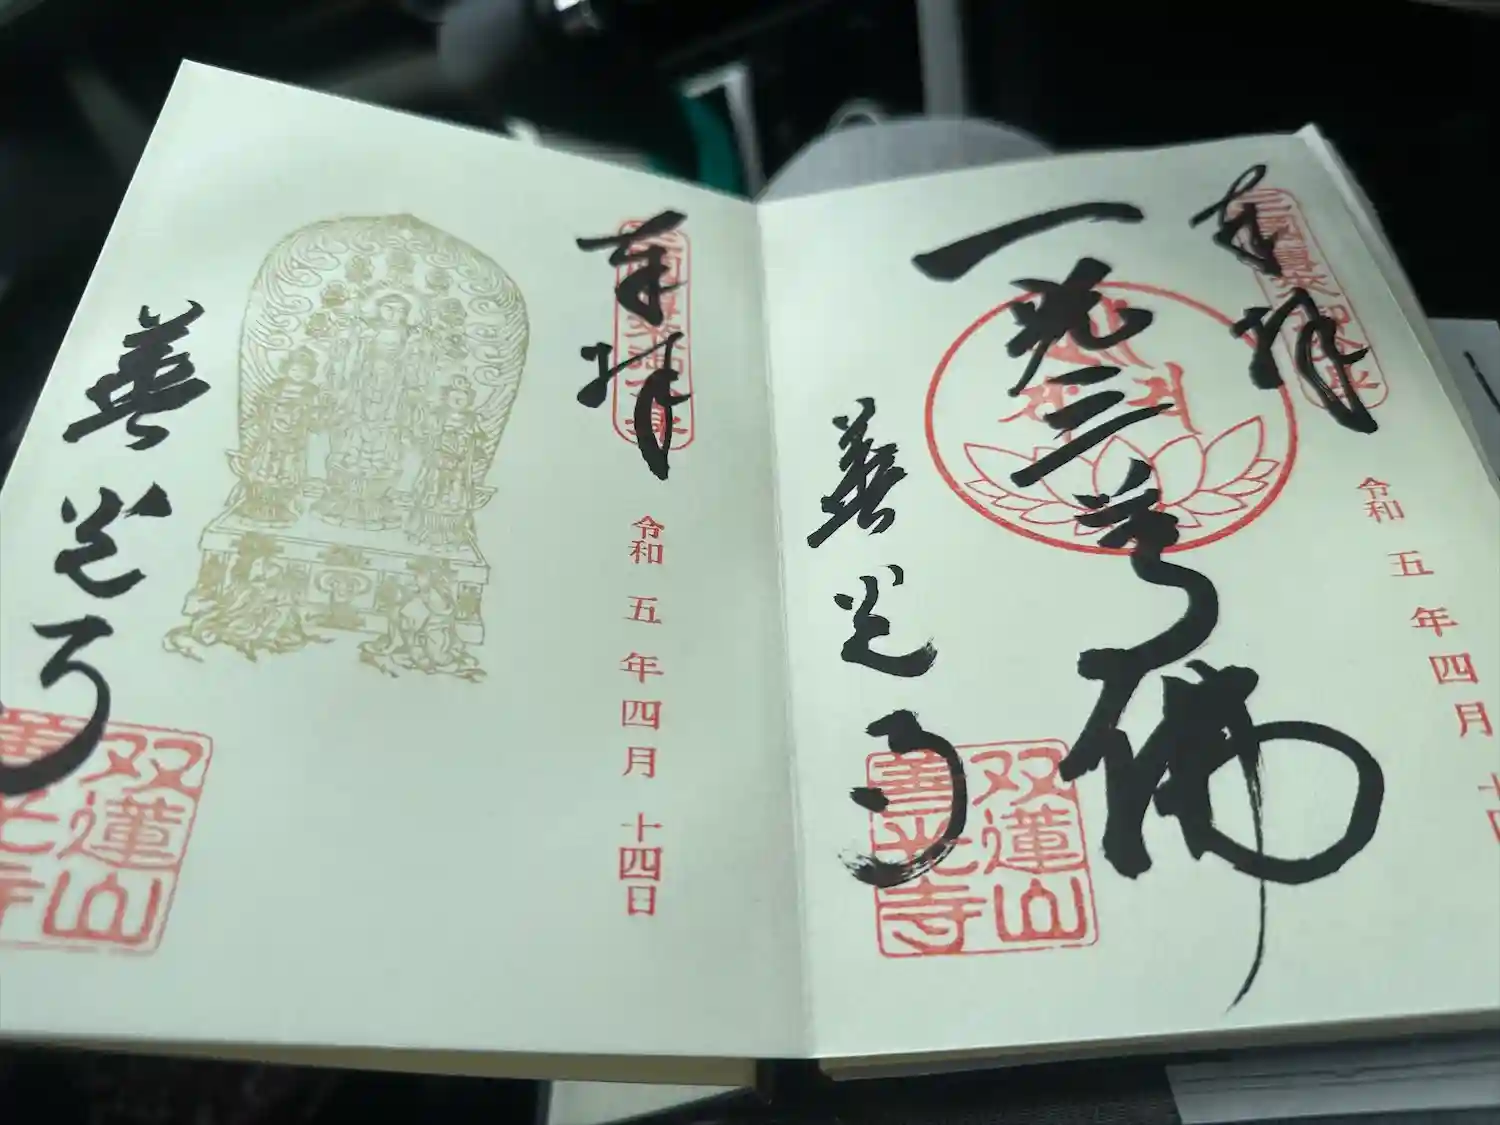 奉拝
令和 五 年 四 月
一光三尊佛
善光寺
双蓮山
善光寺
奉拝
令和 五 年 四 月 十四日
善光寺
双蓮山
善光寺